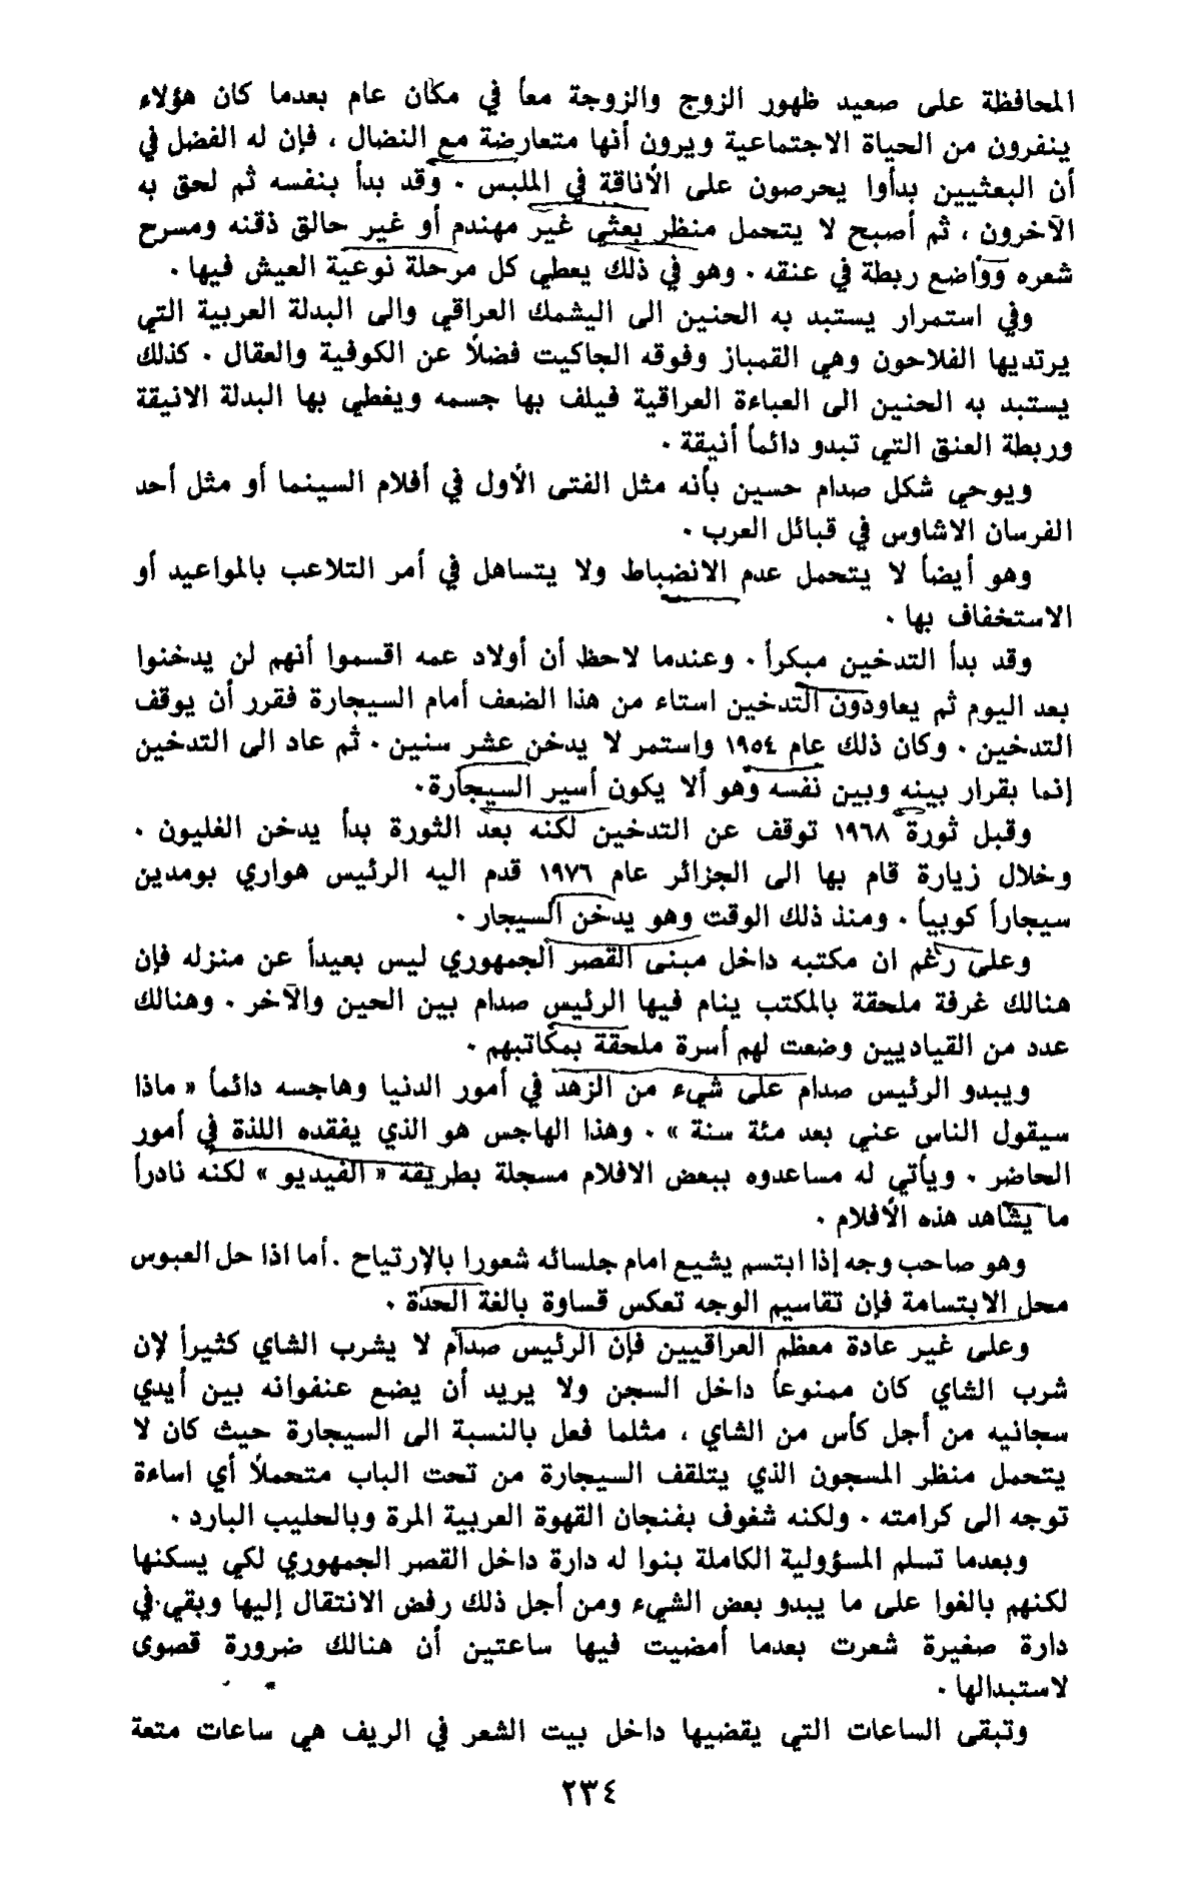 المحافظة على صعيد ظهور الزوج والزوجة معاً في مكان عام بعدما كان هؤلاء
ينفرون من الحياة الاجتماعية ويرون أنها متعارضة مع النضال ، فإن له الفضل في
أن البعثيين بدأوا يحرصون على الأناقة في الملبس . وقد بدأ بنفسه ثم لحق به
الآخرون ، ثم أصبح لا يتحمل منظر بعثي غير مهندم أو غير حالق ذقنه ومسرح
شعره وواضع ربطة في عنقه . وهو في ذلك يعطي كل مرحلة نوعية العيش فيها .
وفي استمرار يستبد به الحنين الى اليشمك العراقي والى البدلة العربية التي
يرتديها الفلاحون وهي القمباز وفوقه الجاكيت فضلاً عن الكوفية والعقال . كذلك
يستبد به الحنين الى العباءة العراقية فيلف بها جسمه ويغطي بها البدلة الانيقة
وربطة العنق التي تبدو دائماً أنيقة .
ويوحي شكل صدام حسين بأنه مثل الفتى الأول في أفلام السينما أو مثل أحد
الفرسان الاشاوس في قبائل العرب .
وهو أيضاً لا يتحمل عدم الانضباط ولا يتساهل في أمر التلاعب بالمواعيد أو
الاستخفاف بها .
وقد بدأ التدخين مبكراً . وعندما لاحظ أن أولاد عمه اقسموا أنهم لن يدخنوا
بعد اليوم ثم يعاودون التدخين استاء من هذا الضعف أمام السيجارة فقرر أن يوقف
التدخين . وكان ذلك عام ١٩٥٤ واستمر لا يدخن عشر سنين . ثم عاد الى التدخين
إنما بقرار بينه وبين نفسه وهو ألا يكون أسير السيجارة.
وقبل ثورة ١٩٦٨ توقف عن التدخين لكنه بعد الثورة بدأ يدخن الغليون .
وخلال زيارة قام بها الى الجزائر عام ١٩٧٦ قدم اليه الرئيس هواري بومدين
سيجاراً كوبياً . ومنذ ذلك الوقت وهو يدخن السيجار .
وعلى رغم ان مكتبه داخل مبنى القصر الجمهوري ليس بعيداً عن منزله فإن
هنالك غرفة ملحقة بالمكتب ينام فيها الرئيس صدام بين الحين والآخر . وهنالك
عدد من القياديين وضعت لهم أسرة ملحقة بمكاتبهم .
ويبدو الرئيس صدام على شيء من الزهد في أمور الدنيا وهاجسه دائماً « ماذا
سيقول الناس عني بعد مئة سنة » . وهذا الهاجس هو الذي يفقده اللذة في أمور
الحاضر . ويأتي له مساعدوه ببعض الافلام مسجلة بطريقة « الفيديو » لكنه نادراً
ما يشاهد هذه الأفلام .
وهو صاحب وجه إذا ابتسم يشيع امام جلسائه شعورا بالإرتياح . أما اذا حل العبوس
محل الابتسامة فإن تقاسيم الوجه تعكس قساوة بالغة الحدة .
وعلى غير عادة معظم العراقيين فإن الرئيس صدام لا يشرب الشاي كثيراً لإن
شرب الشاي كان ممنوعاً داخل السجن ولا يريد أن يضع عنفوانه بين أيدي
سجانيه من أجل كأس من الشاي ، مثلما فعل بالنسبة الى السيجارة حيث كان لا
يتحمل منظر المسجون الذي يتلقف السيجارة من تحت الباب متحملاً أي اساءة
توجه الى كرامته . ولكنه شغوف بفنجان القهوة العربية المرة وبالحليب البارد .
وبعدما تسلم المسؤولية الكاملة بنوا له دارة داخل القصر الجمهوري لكي يسكنها
لكنهم بالغوا على ما يبدو بعض الشيء ومن أجل ذلك رفض الانتقال إليها وبقي في
دارة صغيرة شعرت بعدما أمضيت فيها ساعتين أن هنالك ضرورة قصوى
لاستبدالها .
وتبقى الساعات التي يقضيها داخل بيت الشعر في الريف هي ساعات متعة
٢٣٤